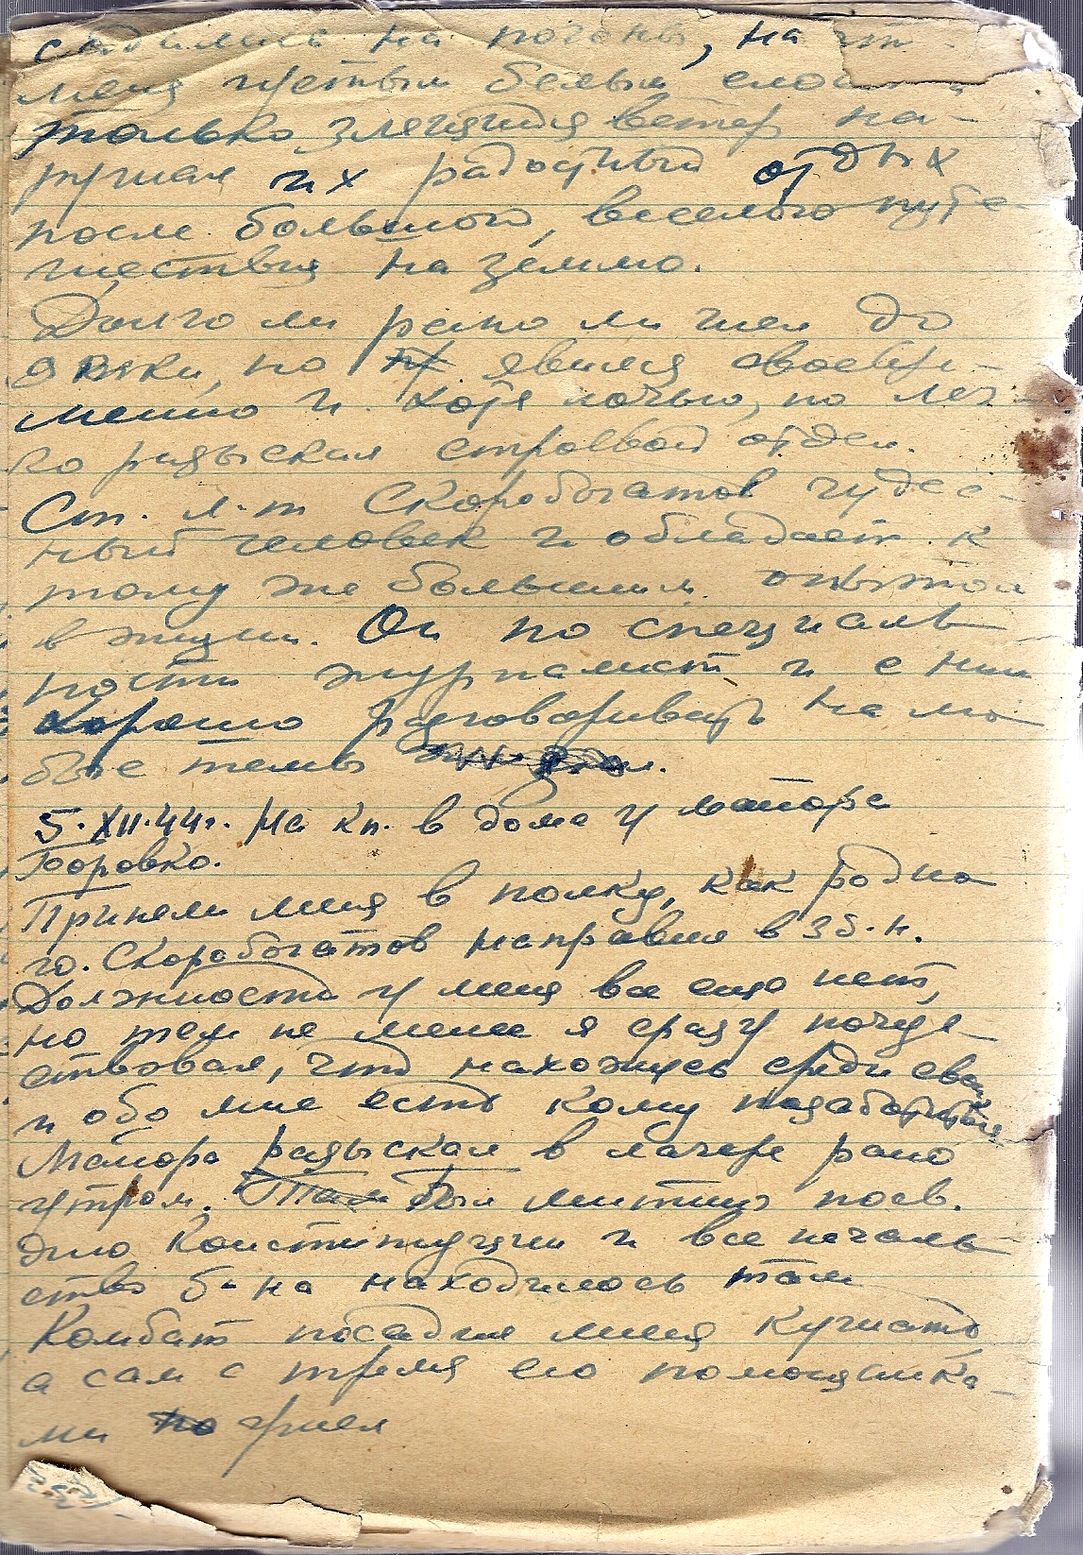 садились на погоны, на
меня густым белым слоем и
только злягущия ветер на-
рушал их радостный отдых
после большого, веселого путе-
шествия на землю.
Долго ли рано ли шел до
явки, но явился своевре-
менно и хотя ночью, но лег-
ко разыскал строевой отдел.
Ст. л-т Скоробогатов чудес-
ный человек и обладает к
тому же большим опытом
в жизни. Он по специаль-
ности журналист и с ним
хорошо разговаривать на лю-
бые темы
5.XII.44г. На кп. в доме у майора
Боровко.
Приняли меня в полку, как родно-
го. Скоробогатов направил в 3 б-н.
Должности у меня все еще нет,
но тем не менее я сразу почув-
ствовал, что нахожусь среди своих
и обо мне есть кому позаботиться
Майора разыскал в лагере рано
утром. Там был митинг посв.
дню Конституции и все началь-
ство б-на находилось там
Комбат посадил меня кушать,
а сам с тремя его помощника-
ми ушел